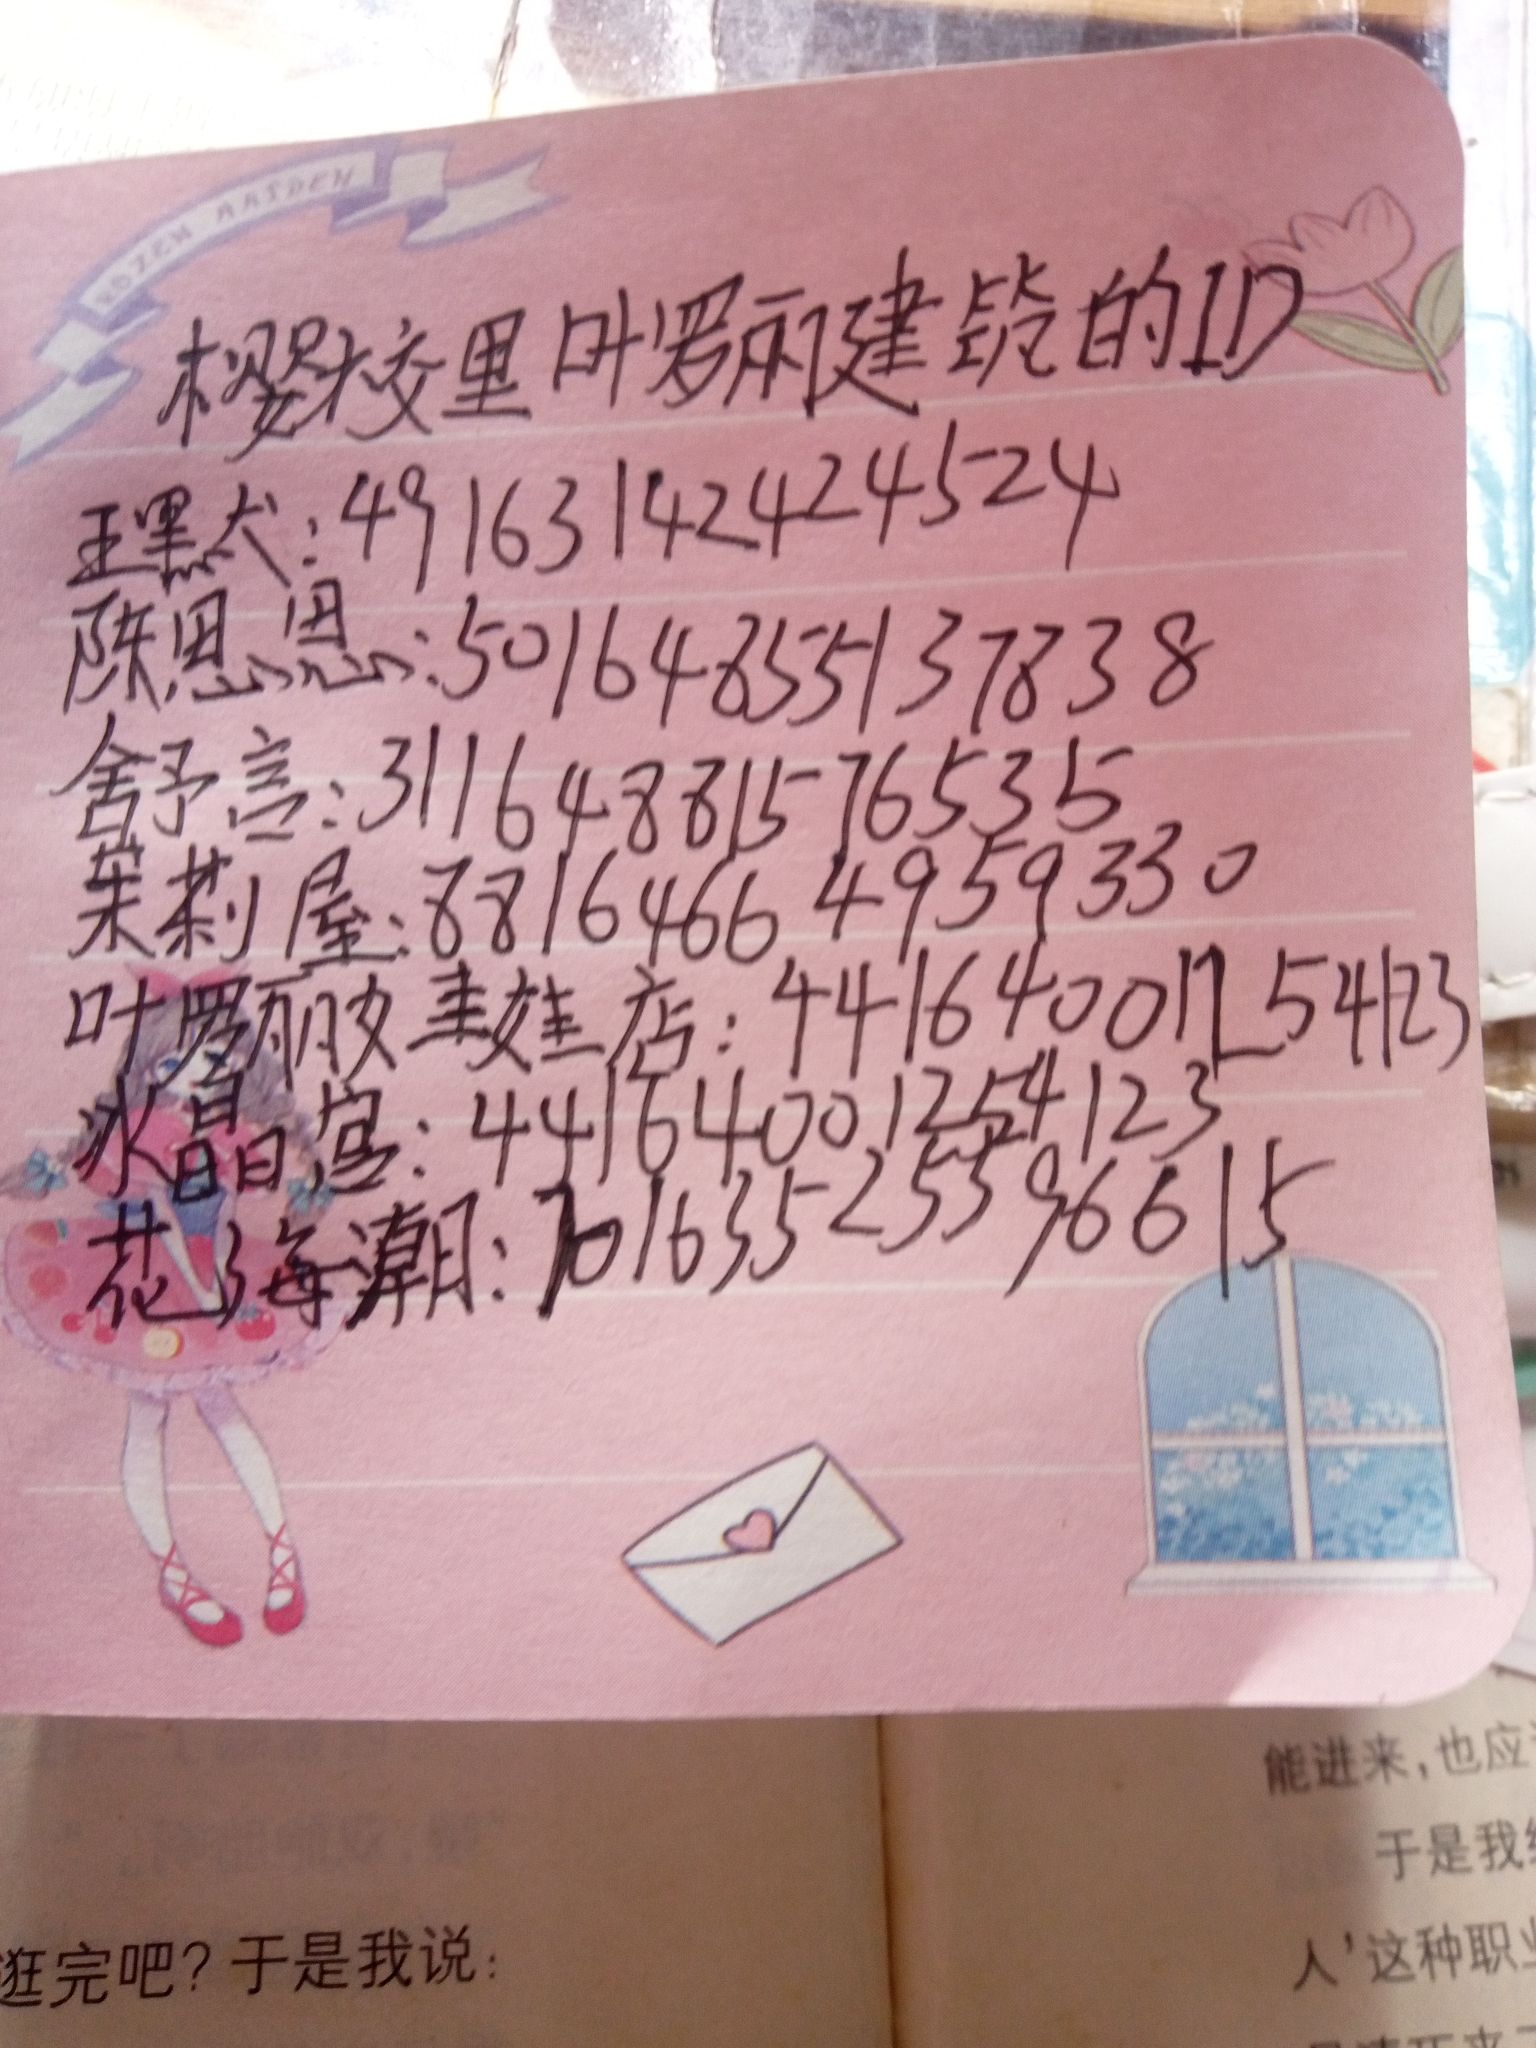 ROZEN MAIDEN
樱校里叶罗丽建筑的ID
王黑犬:491631424244524
陈思思:501648355137838
舍予言:31164881576535
茱莉屋:881646649593330
叶罗丽娃娃店:44164001254123
冰晶宫:44164001254123
花海潮:70163525596615
能进来,也应
于是我
人’这种职业
逛完吧?于是我说: